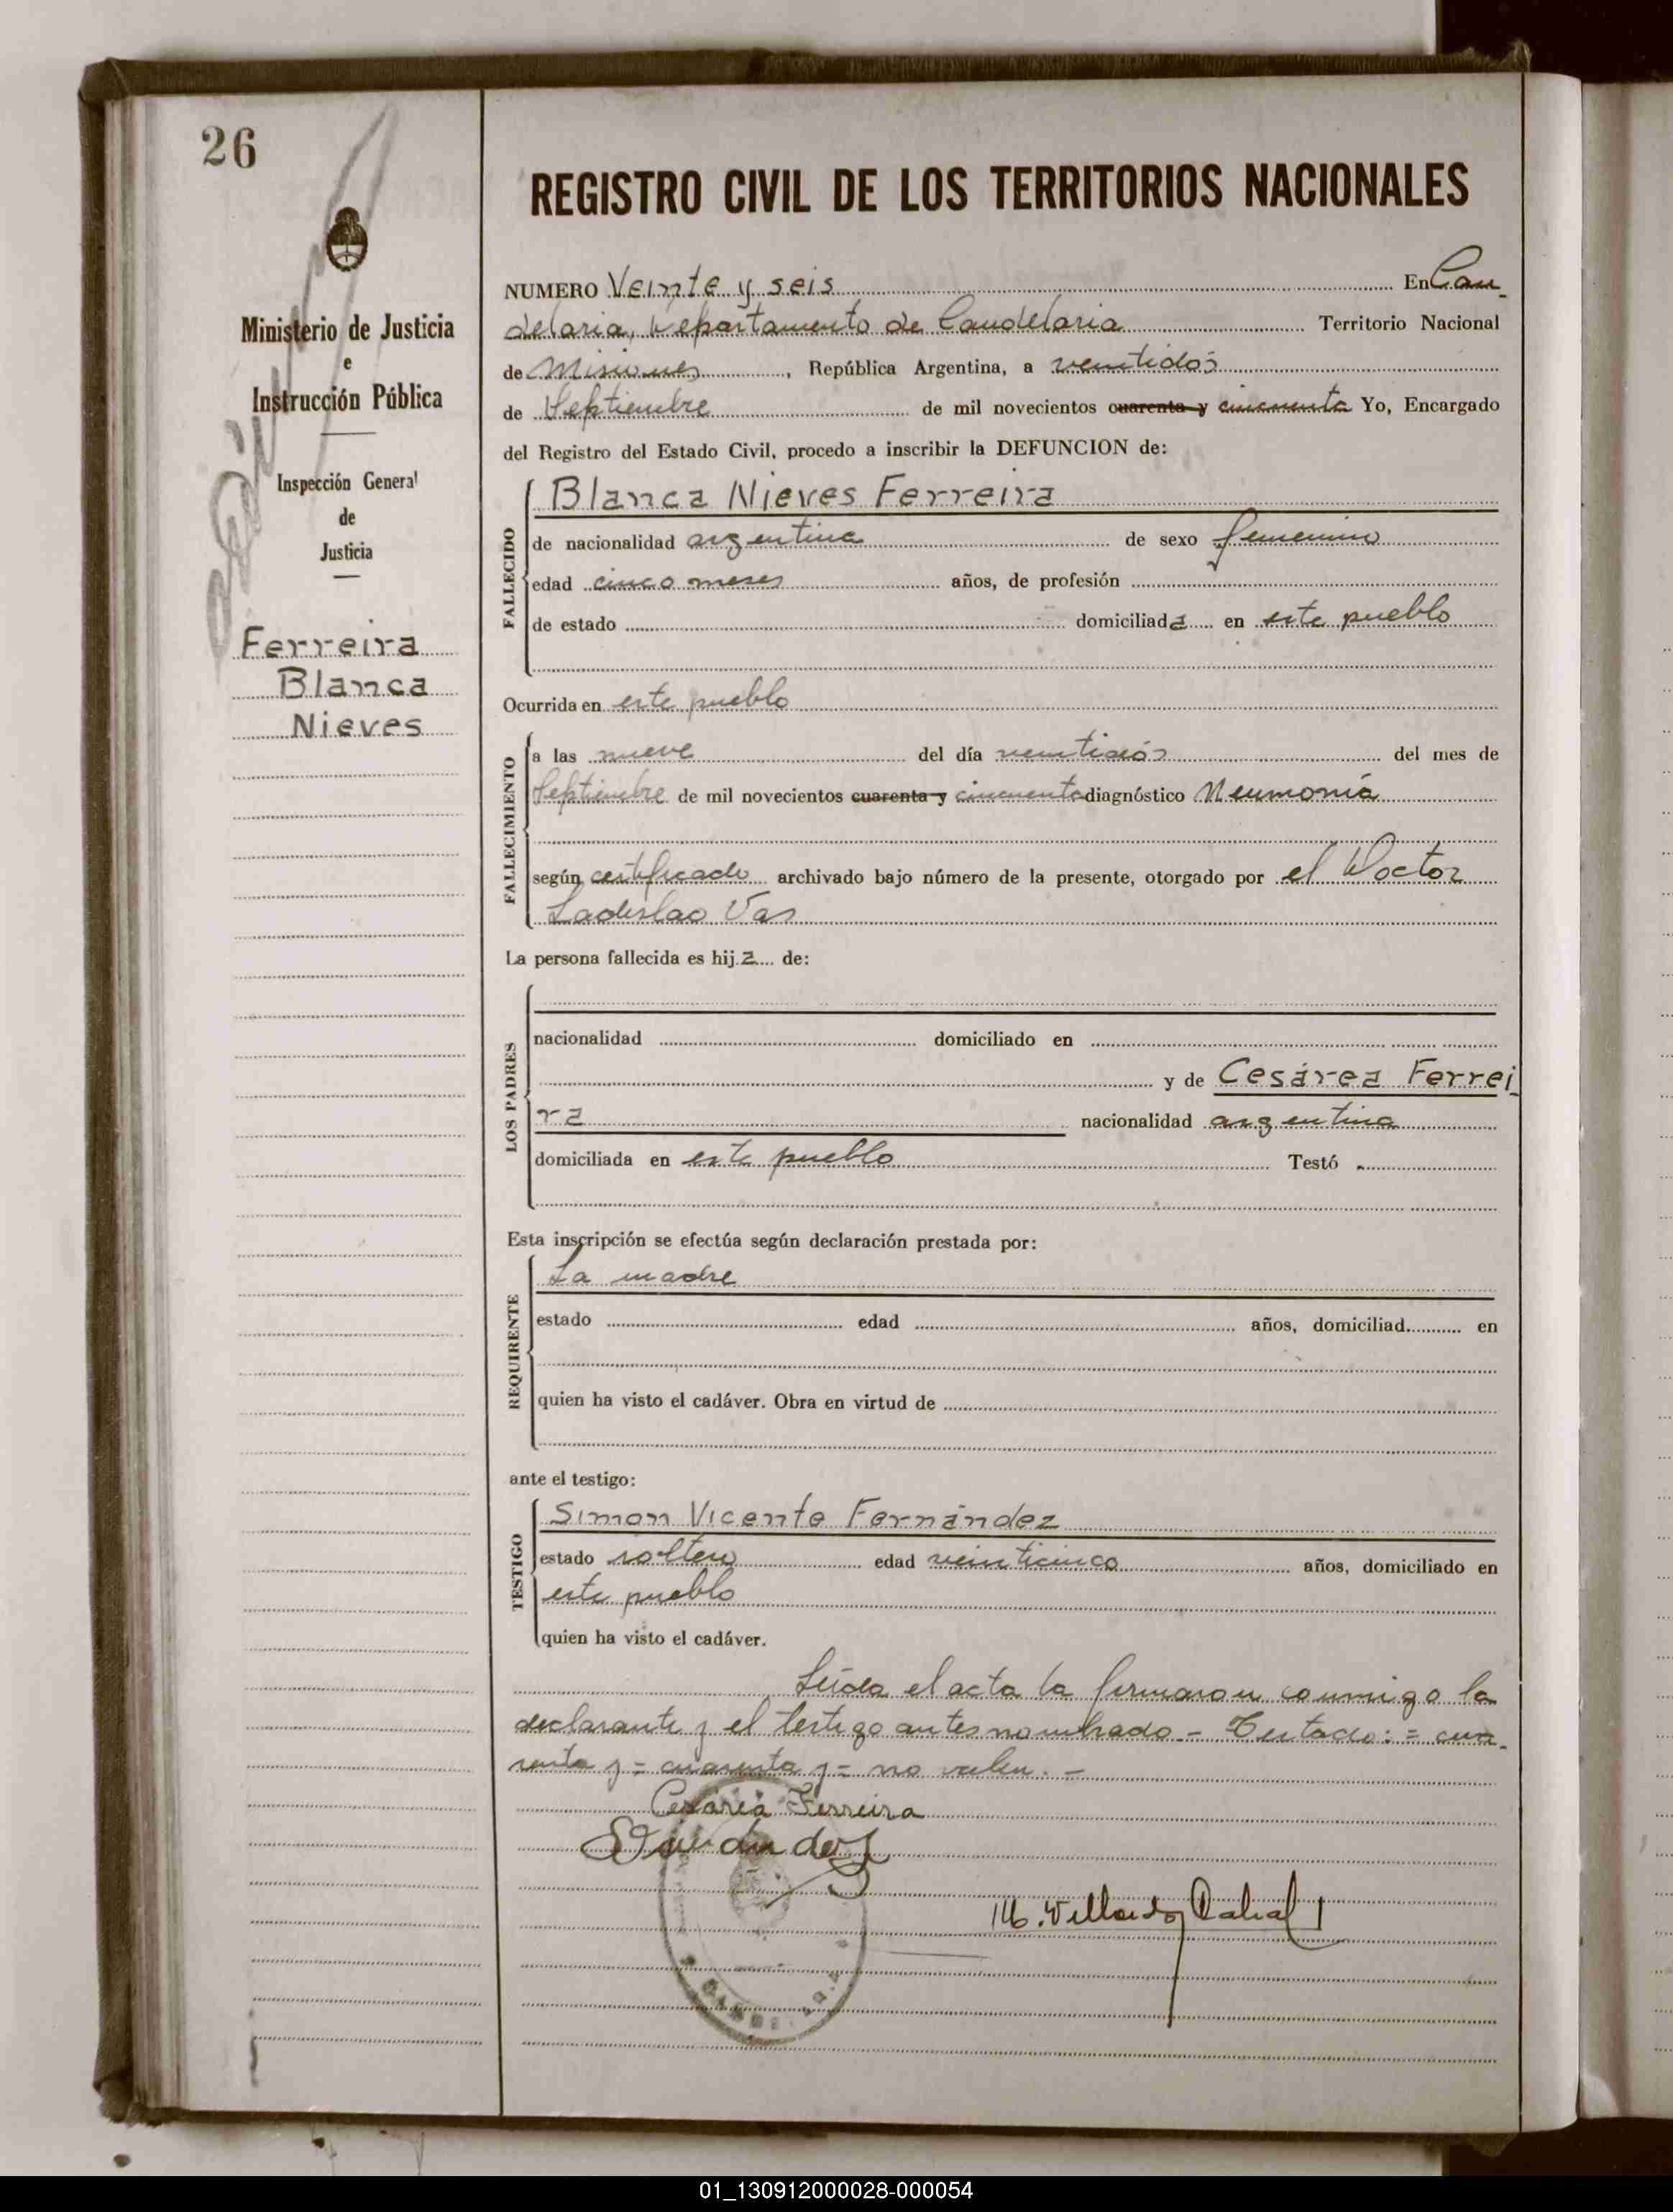 26
Ministerio de Justicia
e
Instrucción Pública
Inspección General
de
Justicia
Ferreira
Blanca
Nieves
REGISTRO CIVIL DE LOS TERRITORIOS NACIONALES
NUMERO Veinte y seis En Can
delaria, Departamento de Candelaria Territorio Nacional
de Misiones, República Argentina, a veintidós
de Septiembre de mil novecientos cuarenta y cincuenta Yo, Encargado
del Registro del Estado Civil, procedo a inscribir la DEFUNCION de:
FALLECIDO
Blanca Nieves Ferreira
de nacionalidad argentina de sexo femenino
edad cinco meses años, de profesión
de estado domiciliada en este pueblo
Ocurrida en este pueblo
FALLECIMIENTO
a las nueve del día veintidós del mes de
Septiembre de mil novecientos cuarenta y cincuenta diagnóstico Neumonía
según certificado archivado bajo número de la presente, otorgado por el Doctor
Ladislao Vas
La persona fallecida es hija de:
LOS PADRES
nacionalidad domiciliado en
y de Cesárea Ferrei
ra nacionalidad argentina
domiciliada en este pueblo Testó
Esta inscripción se efectúa según declaración prestada por:
REQUIRENTE
La madre
estado edad años, domiciliad en
quien ha visto el cadáver. Obra en virtud de
ante el testigo:
TESTIGO
Simon Vicente Fernández
estado soltero edad veinticinco años, domiciliado en
este pueblo
quien ha visto el cadáver.
Leída el acta la firmaron conmigo la
declarante y el testigo antes nombrado - Testado: = cua
renta y = cuarenta y = no valen. -
Cesárea Ferreira
M. Cabral
01_130912000028-000054